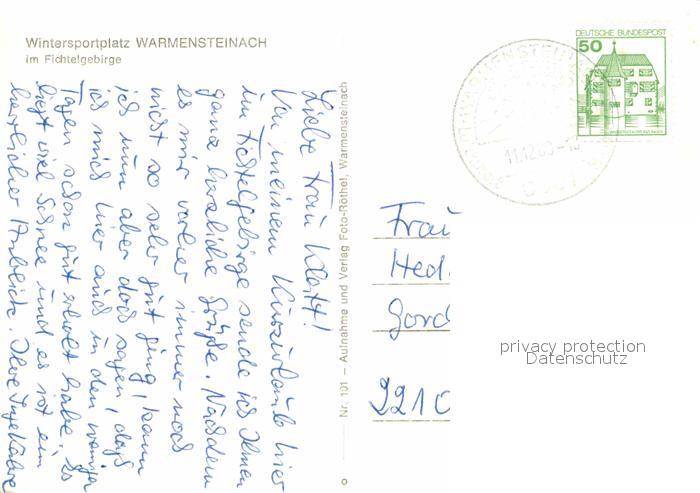 Wintersportplatz WARMENSTEINACH
im Fichtelgebirge
Liebe Frau Klatt!
Von meinem Kurzurlaub hier
im Fichtelgebirge sende ich Ihnen
ganz herzliche Grüße. Nachdem
es mir vorher immer noch
nicht so sehr gut ging, kann
ich nun aber doch sagen, daß
ich mich hier auch in den wenigen
Tagen schon gut erholt habe. Es
liegt viel Schnee und es ist ein
herrlicher Anblick. Ihre
Nr. 101 — Aufnahme und Verlag Foto-Röthel, Warmensteinach
DEUTSCHE BUNDESPOST
50
WARMENSTEIN
11.12.80-
Frau
Hed
Gord
221
privacy protection
Datenschutz